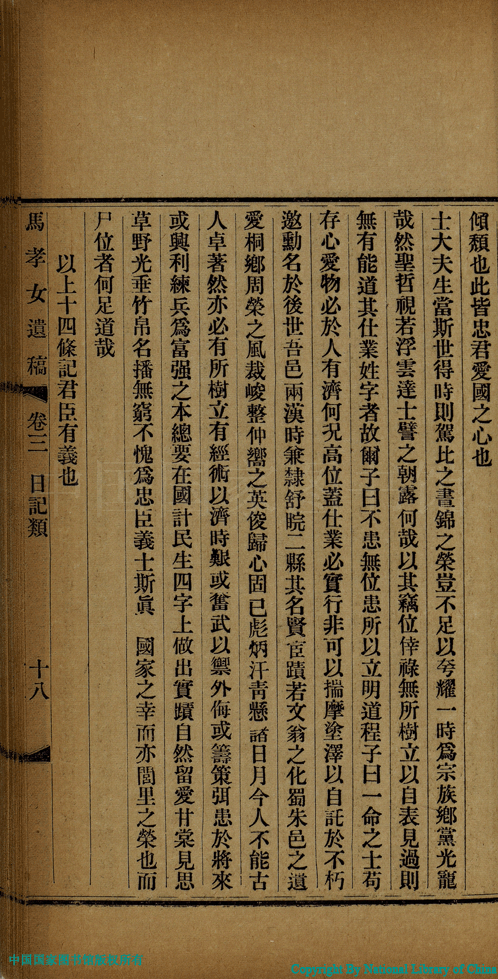 傾頹也此皆忠君愛國之心也
士大夫生當斯世得時則駕比之晝錦之榮豈不足以夸耀一時爲宗族鄉黨光寵
哉然聖哲視若浮雲達士譬之朝露何哉以其竊位倖祿無所樹立以自表見過則
無有能道其仕業姓字者故爾子曰不患無位患所以立明道程子曰一命之士苟
存心愛物必於人有濟何况高位蓋仕業必實行非可以揣摩塗澤以自託於不朽
邀勳名於後世吾邑兩漢時兼隸舒睆二縣其名賢宦蹟若文翁之化蜀朱邑之遺
愛桐鄉周榮之風裁峻整仲嚮之英俊歸心固已彪炳汗青懸諸日月今人不能古
人卓著然亦必有所樹立有經術以濟時艱或奮武以禦外侮或籌策弭患於將來
或興利練兵爲富强之本總要在國計民生四字上做出實蹟自然留愛甘棠見思
草野光垂竹帛名播無窮不愧爲忠臣義士斯眞　國家之幸而亦閭里之榮也而
尸位者何足道哉
以上十四條記君臣有義也
馬孝女遺稿　卷三　日記類　十八
中国国家图书馆版权所有
Copyright By National Library of China